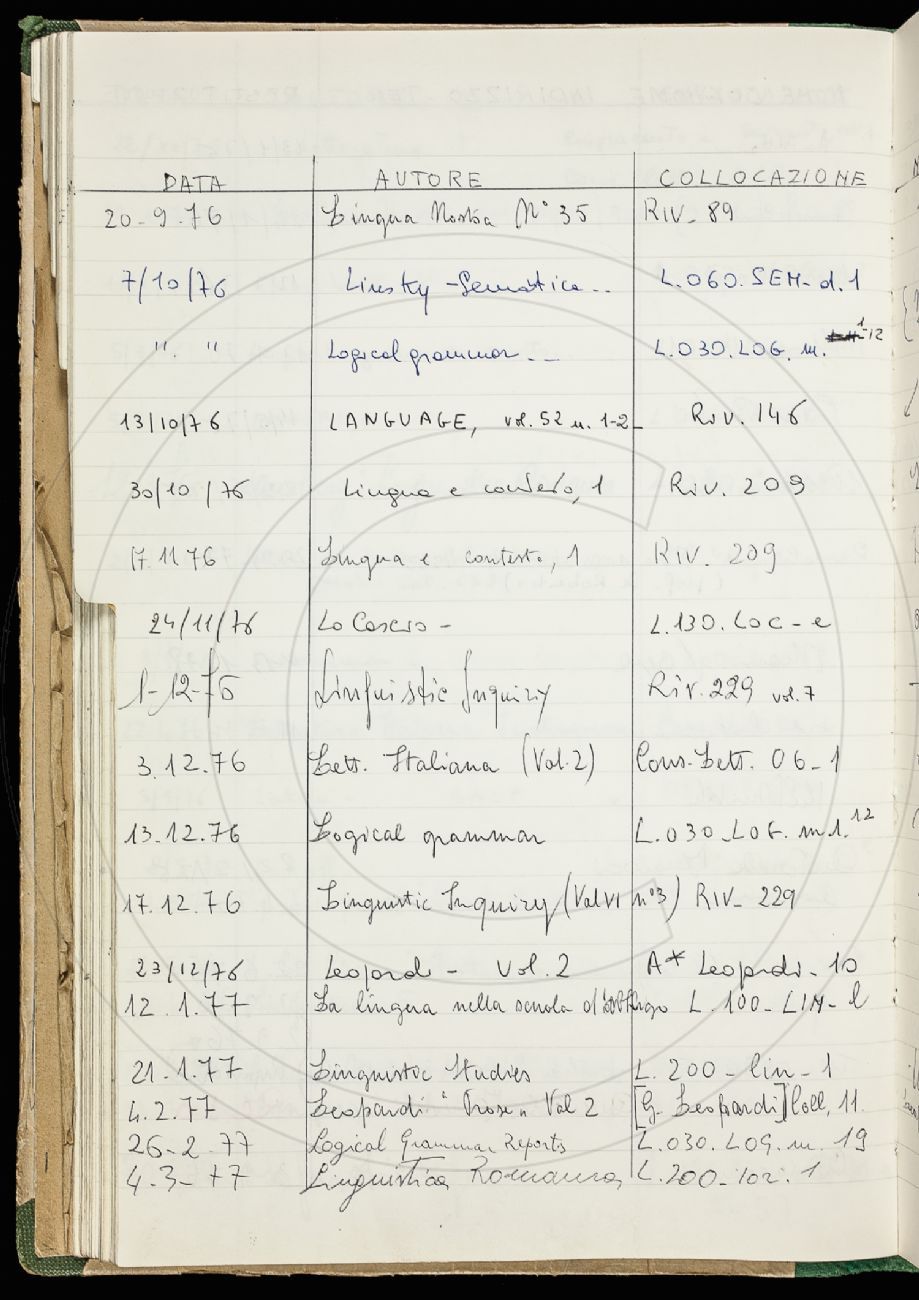 DATA AUTORE COLLOCAZIONE
20-9-76 Lingua Nostra (N° 35 RIV- 89
7/10/76 Linsky - Semantica... L.060.SEM-d.1
". " Logical grammar --- L.030.LOG. m. 1-12
13/10/76 LANGUAGE, vol. 52 n. 1-2- Riv. 146
30/10/76 Lingua e contesto, 1 Riv. 209
17.11.76 Lingua e contesto, 1 RIV. 209
24/11/76 Lo Cascio - L.130.Loc-e
1-12-76 Linguistic Inquiry Riv. 229 vol. 7
3.12.76 Lett. Italiana (Vol. 2) Cons. Lett. 06-1
13.12.76 Logical grammar L.030.LOG. m 1. 12
17.12.76 Linguistic Inquiry (Vol VI n°3) RIV- 229
23/12/76 Leopardi - Vol. 2 A* Leopardi - 10
12.1.77 La lingua nella scuola d'obbligo L.100-LIN-l
21.1.77 Linguistic Studies L.200-lin-1
4.2.77 Leopardi "Prose" Vol 2 [G. Leopardi] Coll. 11.
26-2-77 Logical Grammar Reports L.030.LOG.m. 19
4-3-77 Linguistica Romanza L.200.ior. 1